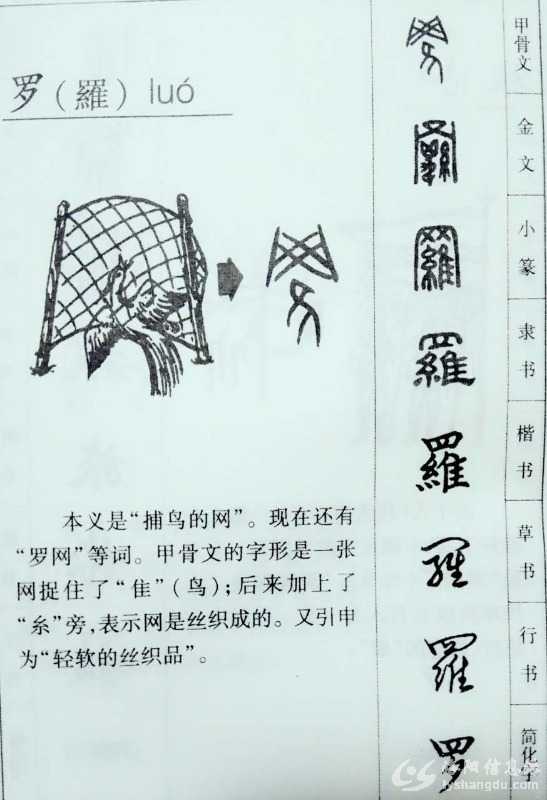 罗（羅）luó
本义是“捕鸟的网”。现在还有
“罗网”等词。甲骨文的字形是一张
网捉住了“隹”（鸟）；后来加上了
“糸”旁，表示网是丝织成的。又引申
为“轻软的丝织品”。
甲骨文
金文
小篆
隶书
羅
楷书
羅
草书
行书
羅
简化字
罗
lyshangdu.com